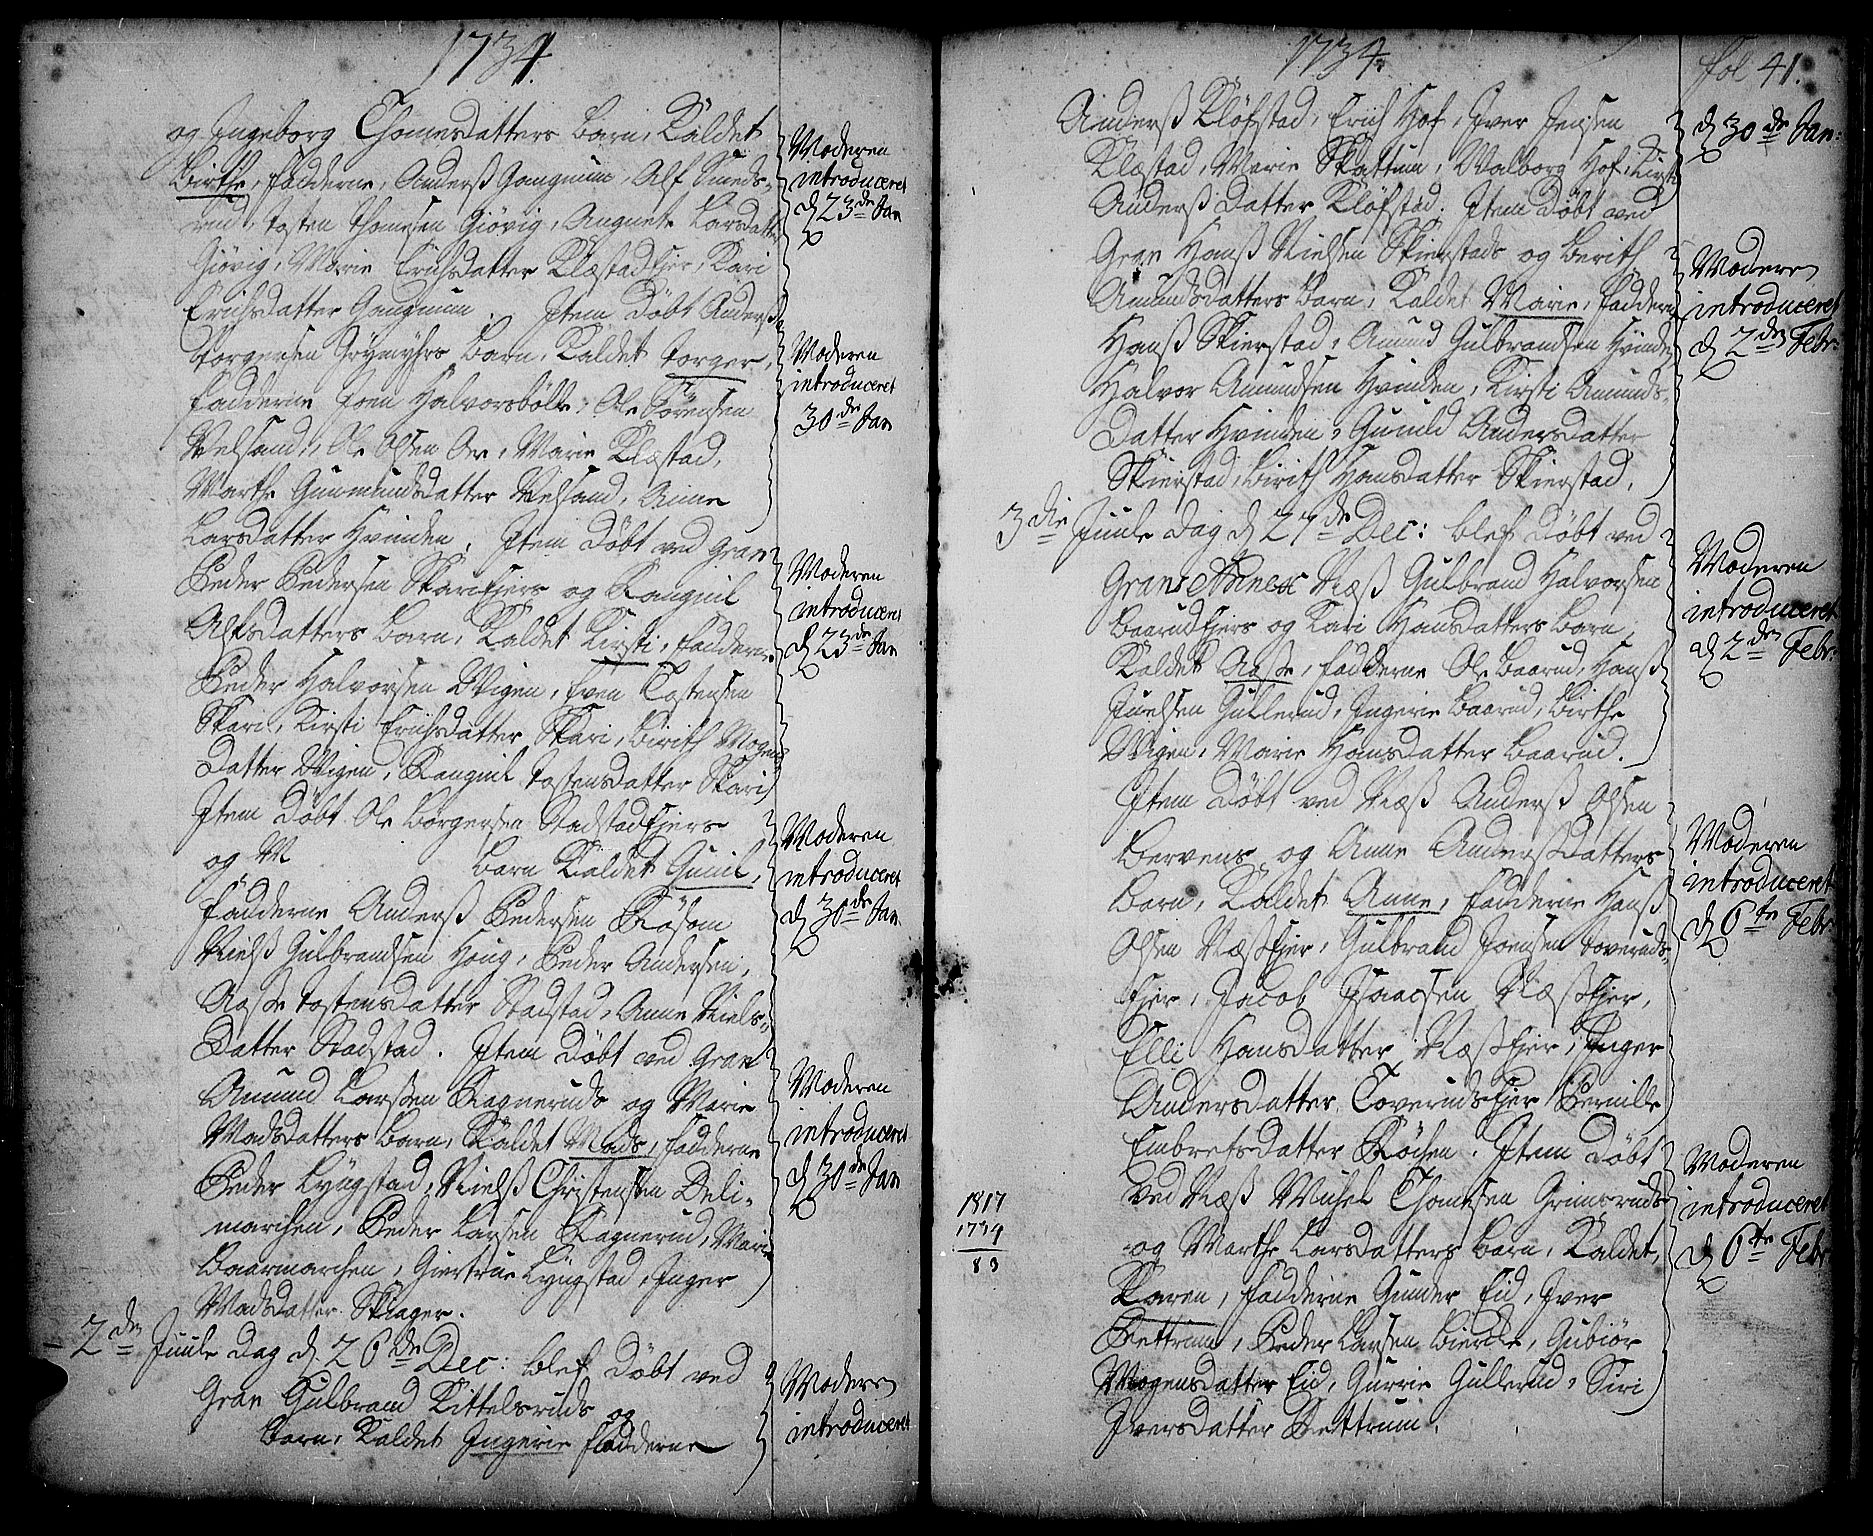 1734.
og Ingeborg Thomesdatters barn, Kaldet
Birthe, fadderne, Anderß Gamgnum, Alf Smeds-
rud, Tosten Thomesen Giövig, Angnete Larsdatter
Giövig, Marie Erichsdatter KlæstadEjer, Kari
Erichsdatter Gamgnum. Item Döbt Anderß
Torgersen barn, Kaldet Torger,
fadderne Joen Halvorsbölle, Ole Sörensen
Velsand, Ole Olsen Ore, Marie Klæstad,
Marthe Gunmundsdatter Velsand, Anne
Larsdatter Hvinden. Item Döbt ved Gran
Peder Pedersen SkariEjers og Rangnil
Alfsdatters barn, Kaldet Kirsti, fadderne
Peder Halvorsen Vigen, Even Tostensen
Skari, Kirsti Erichsdatter Skari, Birith Mogens
Datter Vigen, Rangnil Tostensdatter Skari
Item Döbt Ole Borgersen StadstadEjers
og M barn Kaldet Gunil,
fadderne Anderß Pedersen Röson
Nielß Gulbrandsen Houg, Peder Andersen,
Aaße Tostensdatter Stadstad, Anne Niels-
Datter Stadstad. Item Döbt ved Gran
Amund Larsen Ragneruds og Marie
Madsdatters barn, Kaldet Mads, fadderne
Peder Lyngstad, Nielß Christensen Deli-
marchen, Peder Larsen Ragnerud, Marie
Baarmarchen, Giertrue Lyngstad, Inger
Madsdatter Skiager.
2den Juule Dag d. 26de Dec: blef Döbt ved
Gran Gulbrand Kittelsruds og
barn, Kaldet Ingerie fadderne
Moderen
introduceret
d 23de Jan
Moderen
introduceret
30de Jan
Moderen
introduceret
d 23de Jan
Moderen
introduceret
d 30de Jan
Moderen
introduceret
d 30de Jan
Moderen
introduceret
1734.
Fol 41.
Anderß Klöfstad, Erich Hof, Iver Jensen
Klæstad, Marie Skattum, Walborg Hof, Kirsti
Anderß Datter Klöfstad. Item Döbt ved
Gran Hanß Nielsen Skierstads og Berith
Amundsdatters barn, Kaldet Marie, fadderne
Hanß Skierstad, Amund Gulbrandsen Hvinden
Halvor Amundsen Hvinden, Kirsti Amunds-
Datter Hvinden, Gunild Andersdatter
Skierstad, Birith Hansdatter Skierstad.
3die Juule Dag d 27de Dec: blef Döbt ved
Gran Annex Næß Gulbrand Halvorsen
BaarudEjers og Kari Hansdatters barn
Kaldet Aaße, fadderne Ole Baarud, Hanß
Juelsen Gullerud, Ingerie Baarud, Birthe
Vigen, Marie Hansdatter Baarud.
Item Döbt ved Næß Anderß Olsen
Bervens og Anne Anderßdatters
barn, Kaldet Anne, fadderne Hanß
Olsen NæßEjer, Gulbrand Joensen Toveruds-
Ejer, Jacob Isaacsen NæßEjer,
Elli Hansdatter NæßEjer, Inger
Andersdatter ToverudsEjer Pernille
Embretsdatter Röchen. Item Döbt
ved Næß Michel Thomesen Grimsruds
og Marthe Larsdatters barn, Kaldet,
Karen, fadderne Gunder Eid, Iver
Rettrum, Peder Larsen Bierche, Gubiör
Mogensdatter Eid, Gurrie Gullerud, Siri
Iversdatter Rettrum.
1817
1734
83
d 30de Jan:
Moderen
introduceret
d 2den Febr:
Moderen
introduceret
d 2den Febr:
Moderen
introduceret
d 6te Febr:
Moderen
introduceret
d 6te Febr: